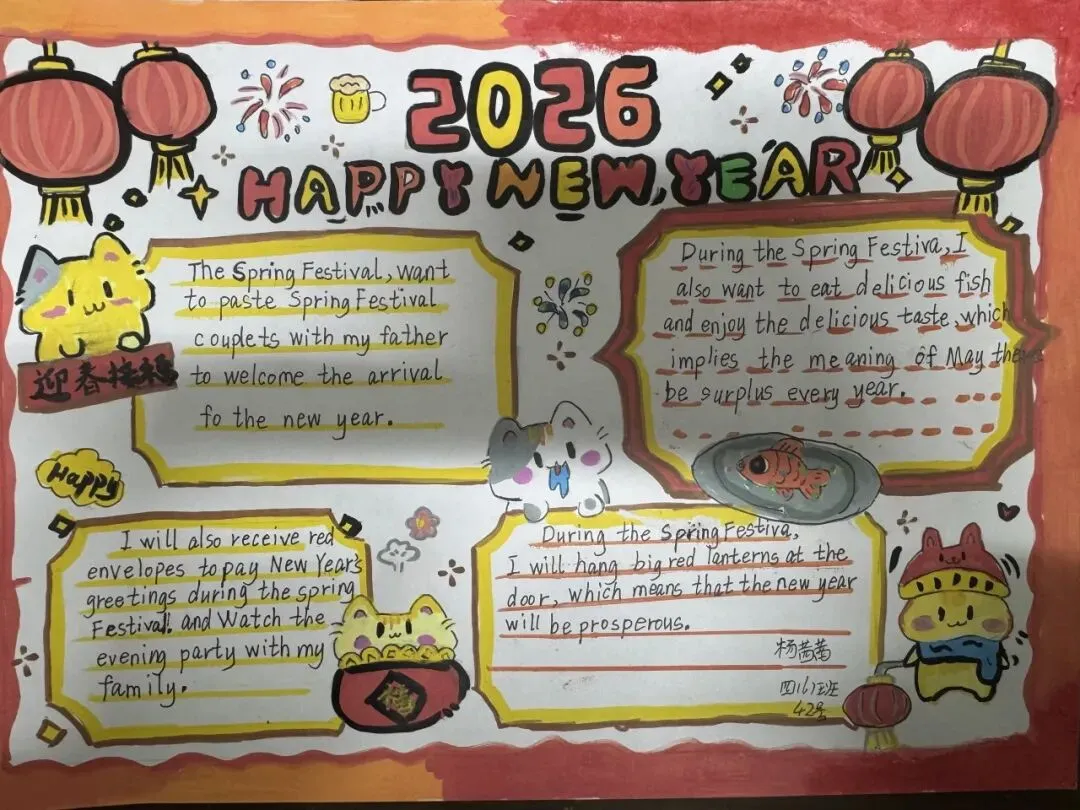 2026
HAPPY NEW YEAR
The Spring Festival, want
to paste Spring Festival
couplets with my father
to welcome the arrival
fo the new year.
迎春接福
During the Spring Festiva, I
also want to eat delicious fish
and enjoy the delicious taste, which
implies the meaning of May there
be surplus every year.
Happy
I will also receive red
envelopes to pay New Year's
greetings during the spring
Festival. and Watch the
evening party with my
family.
福
During the Spring Festiva,
I will hang big red lanterns at the
door, which means that the new year
will be prosperous.
杨茜茜
四(1)班
42号